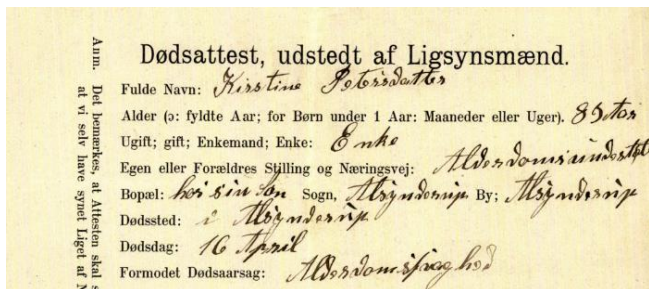 Dødsattest, udstedt af Ligsynsmænd.
Fulde Navn: Kirstine Petersdatter
Alder (ɔ: fyldte Aar; for Børn under 1 Aar: Maaneder eller Uger). 85 Aar
Ugift; gift; Enkemand; Enke: Enke
Egen eller Forældres Stilling og Næringsvej:
Bopæl: hos sin Søn Sogn, Alsynderup By; Alsynderup
Dødssted: i Alsynderup
Dødsdag: 16 April
Formodet Dødsaarsag: Alderdomssvaghed
Anm. Det bemærkes, at Attesten skal
at vi selv have synet Liget af